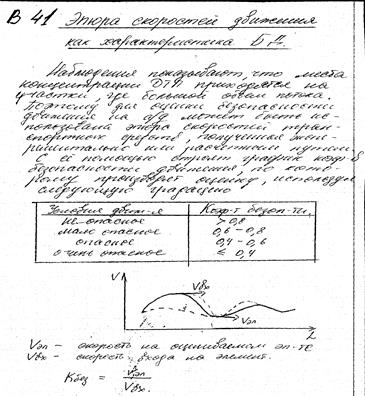 В 41 Эпюра скоростей движения
как характеристика БД.
Наблюдения показывают, что места
концентрации ДТП приходятся на
участки, где большой
Поэтому для оценки безопасности
движения на а/д может быть ис-
пользована эпюра скоростей тран-
спортных средств, полученная экспе-
риментально или расчетным путем.
С её помощью строят график коэф-в
безопасности движения, по кото-
рому производят оценку, используя
следующую градацию
Условия движ-я Коэф-т безоп-ти
не опасное > 0,8
мало опасное 0,6 - 0,8
опасное 0,4 - 0,6
очень опасное ≤ 0,4
V
Vвх
Vэл
L
Vэл - скорость на оцениваемом эл-те
Vвх - скорость входа на элемент.
Kбез = Vэл / Vвх.